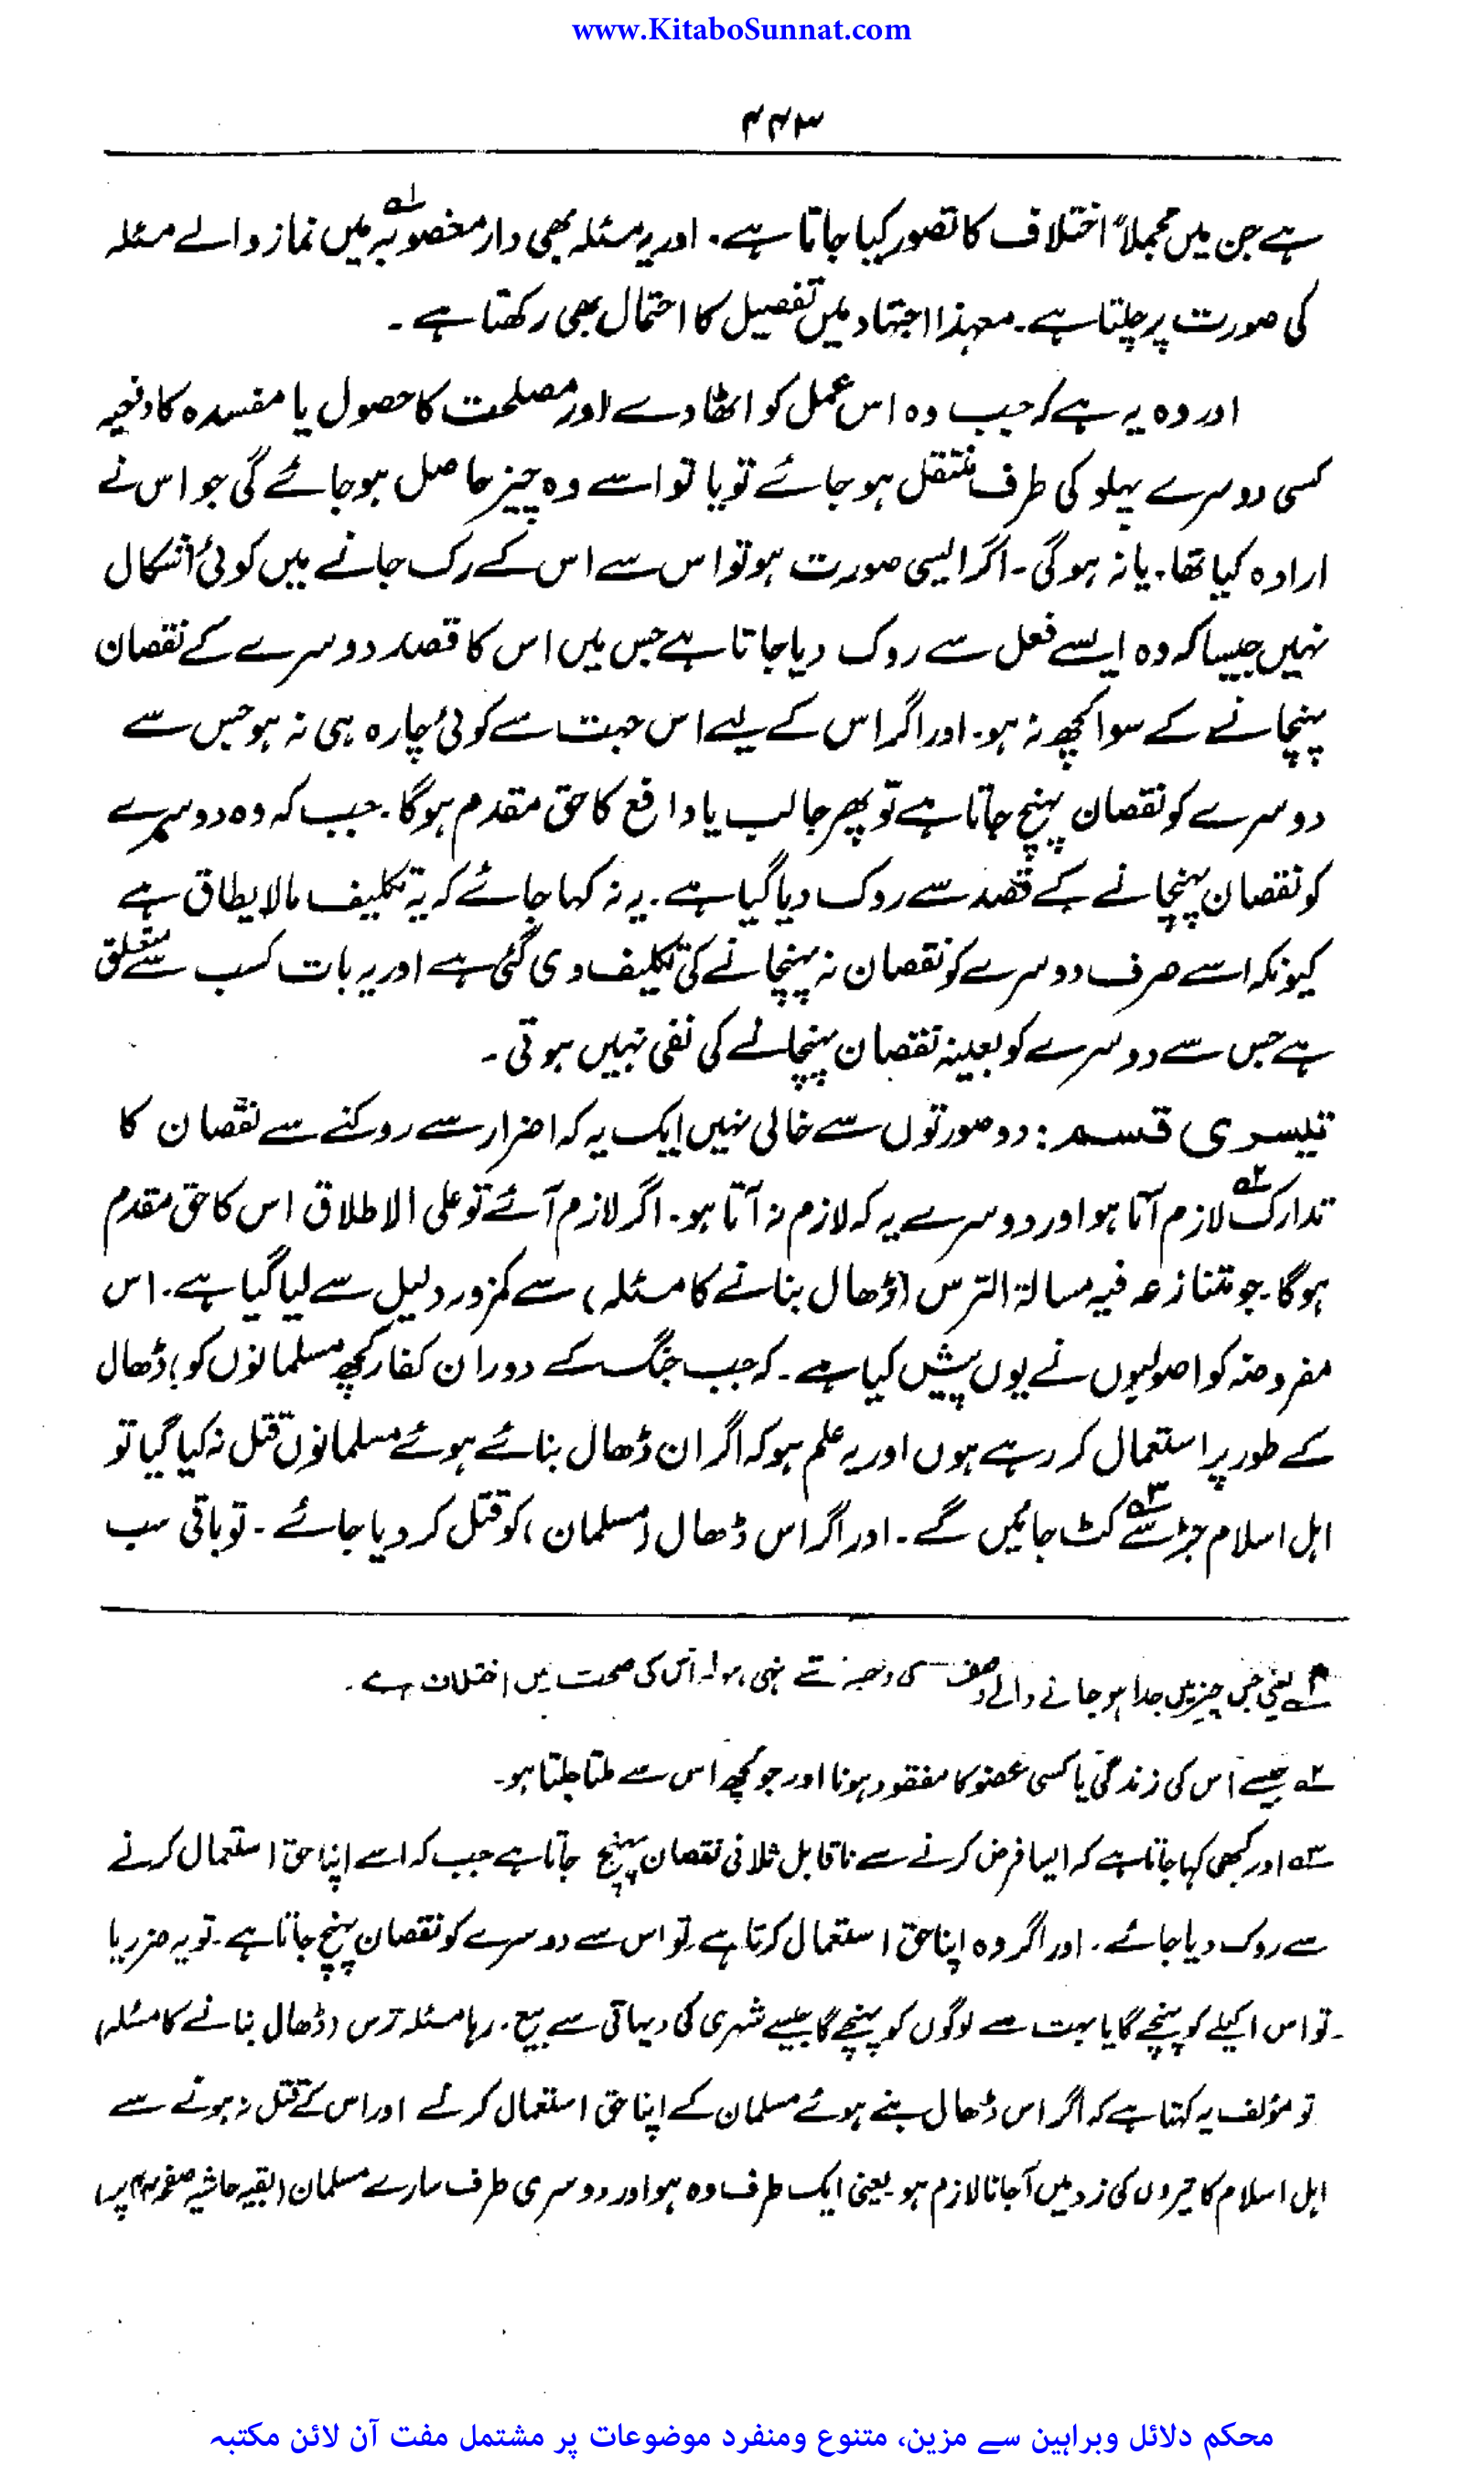 www.KitaboSunnat.com
۴۴۳
ہے جن میں مجملاً اختلاف کا تصور کیا جاتا ہے۔ اور یہ مسئلہ بھی دار مغصوبہ۱ میں نماز والے مسئلہ
کی صورت پر چلتا ہے۔ معہذا اجتہاد میں تفصیل کا احتمال بھی رکھتا ہے۔
اور وہ یہ ہے کہ جب وہ اس عمل کو اٹھا دے اور مصلحت کا حصول یا مفسدہ کا دفعیہ
کسی دوسرے پہلو کی طرف منتقل ہو جائے تو یا تو اسے وہ چیز حاصل ہو جائے گی جو اس نے
ارادہ کیا تھا۔ یا نہ ہوگی۔ اگر ایسی صورت ہو تو اس سے اس کے رک جانے میں کوئی اشکال
نہیں جیسا کہ وہ ایسے فعل سے روک دیا جاتا ہے جس میں اس کا قصد دوسرے کے نقصان
پہنچانے کے سوا کچھ نہ ہو۔ اور اگر اس کے لیے اس جہت سے کوئی چارہ ہی نہ ہو جس سے
دوسرے کو نقصان پہنچ جاتا ہے تو پھر جالب یا دافع کا حق مقدم ہوگا۔ جب کہ وہ دوسرے
کو نقصان پہنچانے کے قصد سے روک دیا گیا ہے۔ یہ نہ کہا جائے کہ یہ تکلیف مالا یطاق ہے
کیونکہ اسے صرف دوسرے کو نقصان نہ پہنچانے کی تکلیف دی گئی ہے اور یہ بات کسب سے متعلق
ہے جس سے دوسرے کو بعینہ نقصان پہنچانے کی نفی نہیں ہوتی۔
تیسری قسم: دو صورتوں سے خالی نہیں ایک یہ کہ اضرار سے روکنے سے نقصان کا
تدارک۲ لازم آتا ہو اور دوسرے یہ کہ لازم نہ آتا ہو۔ اگر لازم آئے تو علی الاطلاق اس کا حق مقدم
ہوگا۔ جو متنازعہ فیہ مسالۃ الترس (ڈھال بنانے کا مسئلہ) سے کمزور دلیل سے لیا گیا ہے۔ اس
مفروضہ کو اصولیوں نے یوں پیش کیا ہے۔ کہ جب جنگ کے دوران کفار کچھ مسلمانوں کو) ڈھال
کے طور پر استعمال کر رہے ہوں اور یہ علم ہو کہ اگر ان ڈھال بنائے ہوئے مسلمانوں قتل نہ کیا گیا تو
اہل اسلام جڑ سے۳ کٹ جائیں گے۔ اور اگر اس ڈھال (مسلمان) کو قتل کر دیا جائے۔ تو باقی سب
۱ یعنی جس چیز میں جدا ہو جانے والے وصف کی وجہ سے نہی ہو۔ اس کی صحت میں اختلاف ہے۔
۲ جیسے اس کی زندگی یا کسی عضو کا مفقود ہونا اور جو کچھ اس سے ملتا جلتا ہو۔
۳ اور کبھی کہا جاتا ہے کہ ایسا فرض کرنے سے ناقابل تلافی نقصان پہنچ جاتا ہے جب کہ اسے اپنا حق استعمال کرنے
سے روک دیا جائے۔ اور اگر وہ اپنا حق استعمال کرتا ہے تو اس سے دوسرے کو نقصان پہنچ جاتا ہے۔ تو یہ ضرر یا
تو اس اکیلے کو پہنچے گا یا بہت سے لوگوں کو پہنچے گا جیسے شہری کی دیہاتی سے بیع۔ رہا مسئلہ ترس (ڈھال بنانے کا مسئلہ)
تو مؤلف یہ کہتا ہے کہ اگر اس ڈھال بنے ہوئے مسلمان کے اپنا حق استعمال کرنے اور اس کے قتل نہ ہونے سے
اہل اسلام کا تیروں کی زد میں آجانا لازم ہو یعنی ایک طرف وہ ہو اور دوسری طرف سارے مسلمان (بقیہ حاشیہ صفحہ پر)
محکم دلائل وبراہین سے مزین، متنوع ومنفرد موضوعات پر مشتمل مفت آن لائن مکتبہ